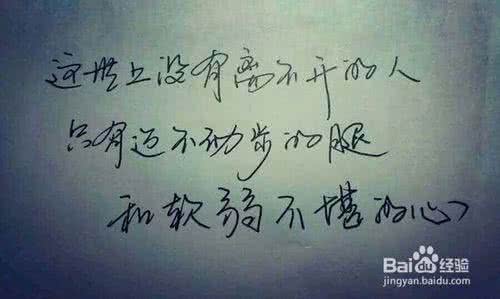 这世上没有离不开的人
只有迈不动步的腿
和软弱不堪的心
Baidu经验
jingyan.baidu.com